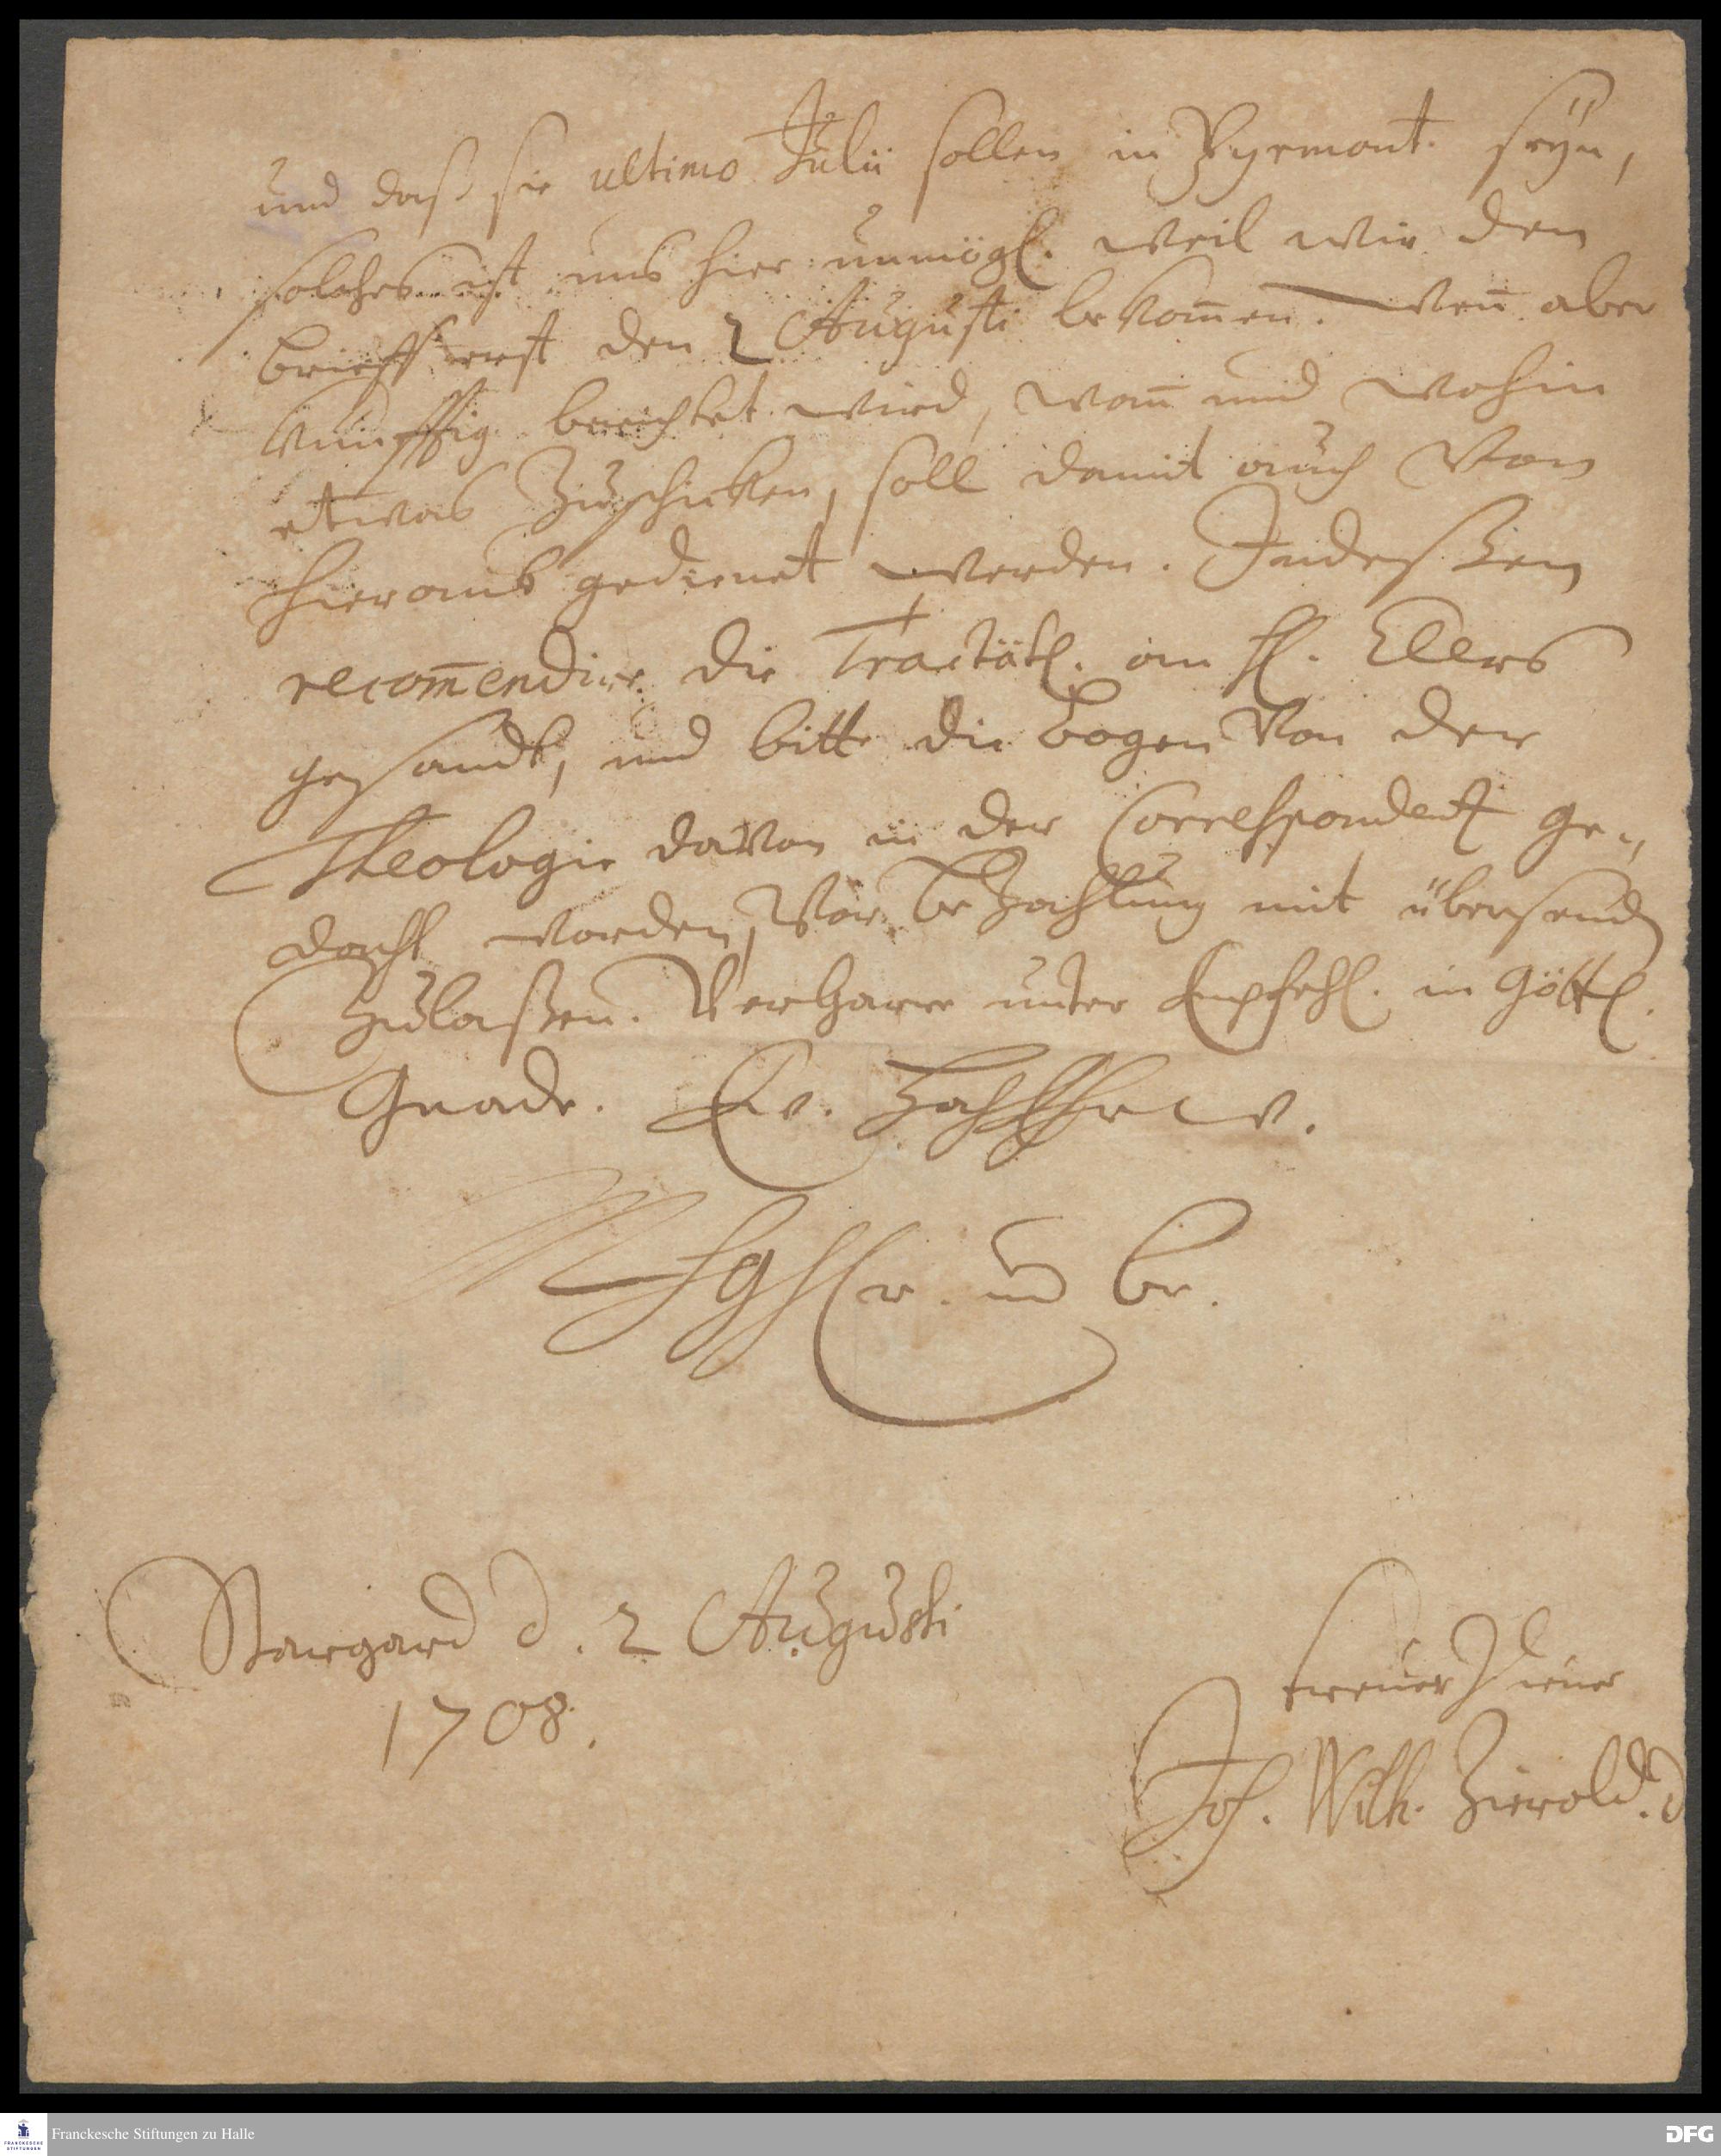 und daß sie ultimo Julii sollen in Pyrmont seyn,
solches ist uns hier unmögl. weil wir den
brieff erst den 2 Augusti bekom̄en. Wen̄ aber
künfftig berichtet wird, wan̄ und wohin
etwas zuschicken, soll damit auch von
hierauß gedienet werden. Indeßen
recom̄endire die Tractätl. an H. Elers
gesandt, und bitte die bogen von der
Theologie davon in der Correspondentz ge-
dacht worden, vor bezahlung mit übersend
zulaßen. Verharre unter Empfehl. in Göttl.
Gnade. Ew. HochEhrw.
und br.
Stargard d. 2 Augusti
1708.
treuer Diener
Joh. Wilh. Zierold. D
Franckesche Stiftungen zu Halle
FRANCKESCHE
STIFTUNGEN
DFG